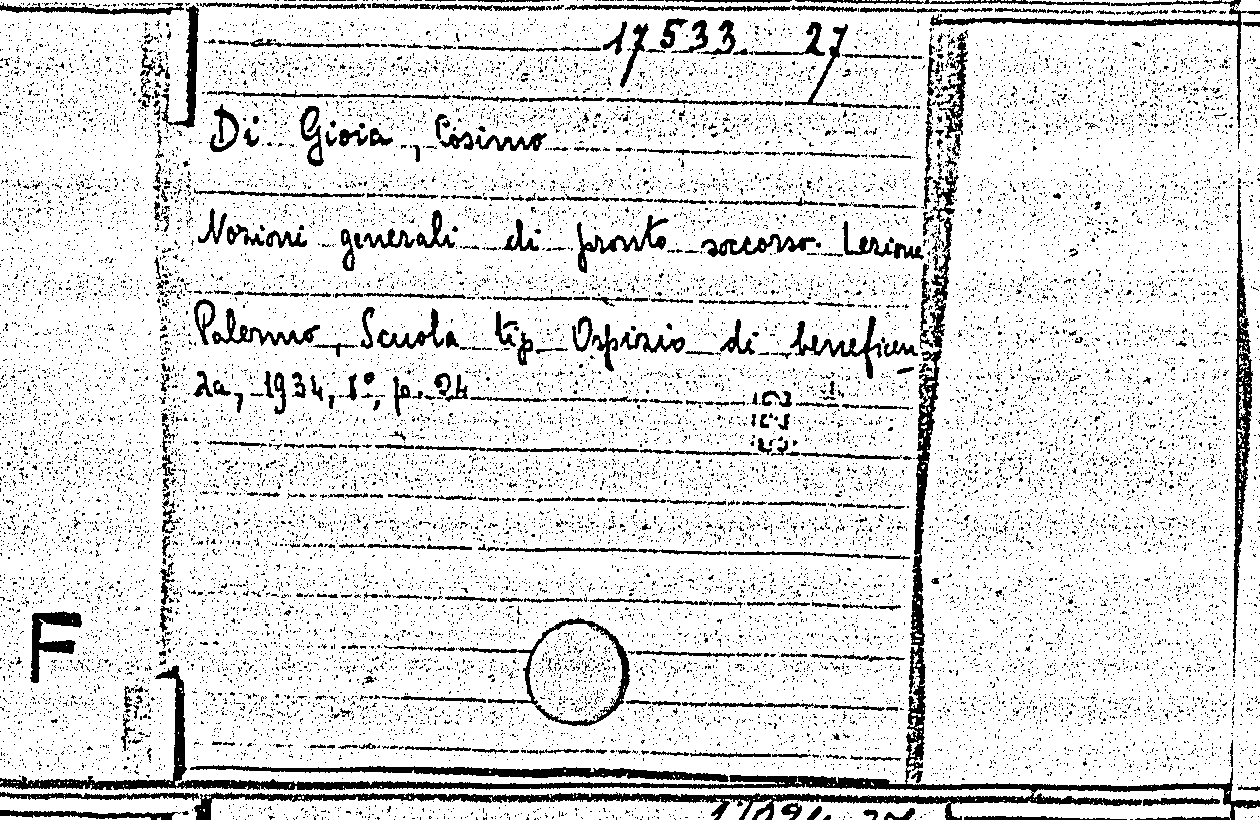 17533. 27
Di Gioia, Cosimo
Nozioni generali di pronto soccorso. Lezione
Palermo, Scuola tip Ospizio di beneficen
za, 1934, 8°, p. 24
F